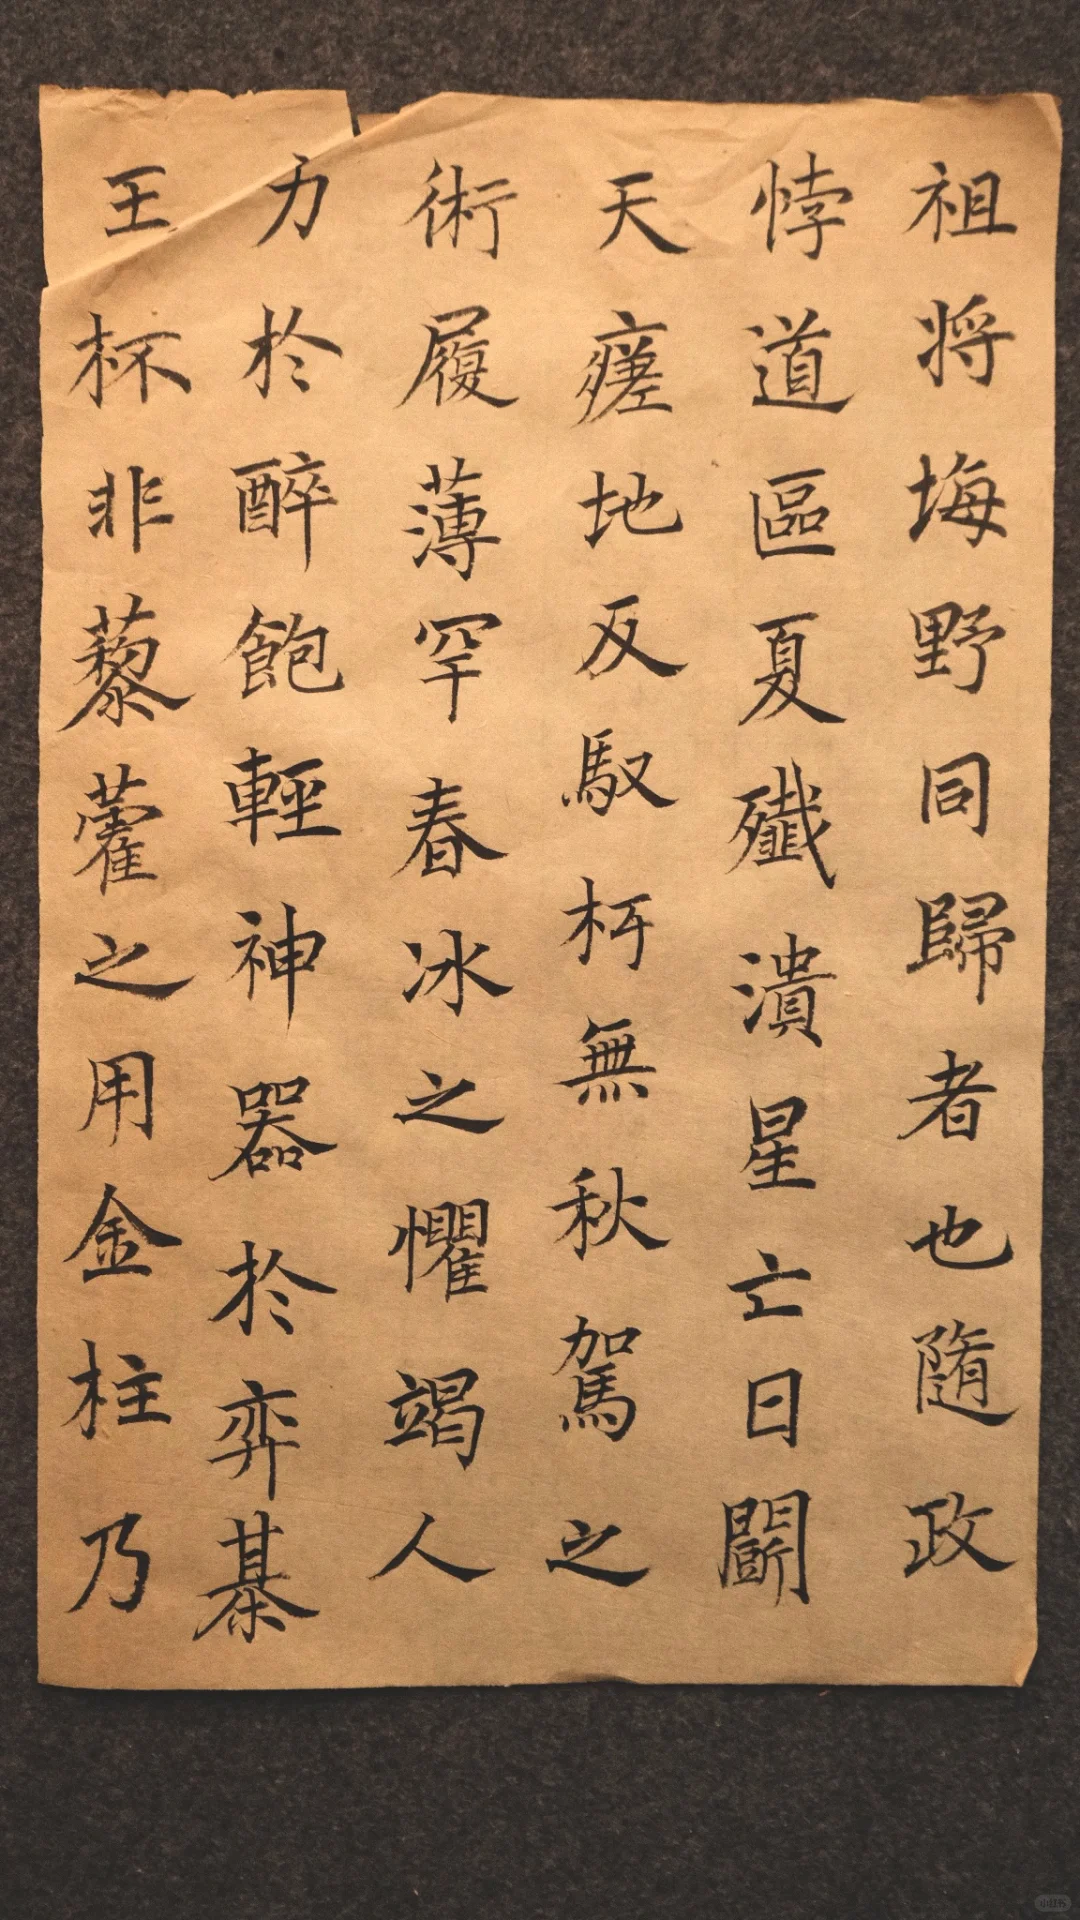 祖将埆野同歸者也随政
悖道區夏殲潰星亡日鬭
天瘥地反馭杇無秋駕之
術履薄罕春冰之懼竭人
力於醉飽輕神器於弈棊
王杯非藜藿之用金柱乃